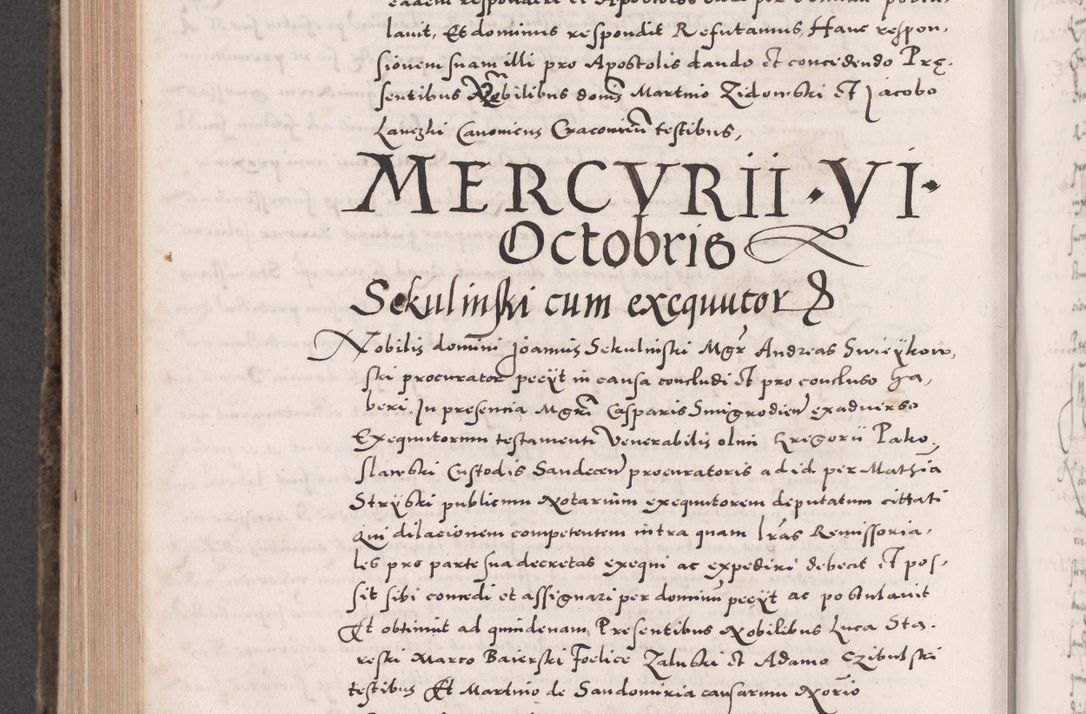 eadem respondere et Apostolos
lauit, Et dominus respondit Refutamus, Hanc respon,
sionem suam illi pro Apostolis dando et concedendo Prę,
sentibus Nobilibus domĩs Martino Zidowski et Jacobo
Lanczki Canonicus Cracovien̄ testibus,
MERCVRII · VI ·
Octobris
Sekulinski cum exequutor
Nobilis domini Joannis Sekulinski Mgr̃ Andreas Swieÿkow,
ski procurator pecÿt in causa concludi et pro concluso ha,
beri. In presentia Mgr̃i Casparis Smigrodien̄ exaduerso
Exequutorum testamenti Venerabilis olim Gregorii Pako,
slawski Custodis Sandecen̄ procuratoris ad id per Mathia
Strÿski publicum Notarium exequutorem deputatum cittati
Qui dilacionem competentem intra quam lr̃as Remissoria,
les pro parte sua decretas exequi ac expediri debeat et pos,
sit sibi concedi et assignari per dominũ pecÿt ac postulauit
Et obtinuit ad quindenam Presentibus Nobilibus Luca Sta,
reski Marco Baierski Foelice Zaluski et Adamo Czibulski
testibus Et Martino de Sandomiria causarum Norio